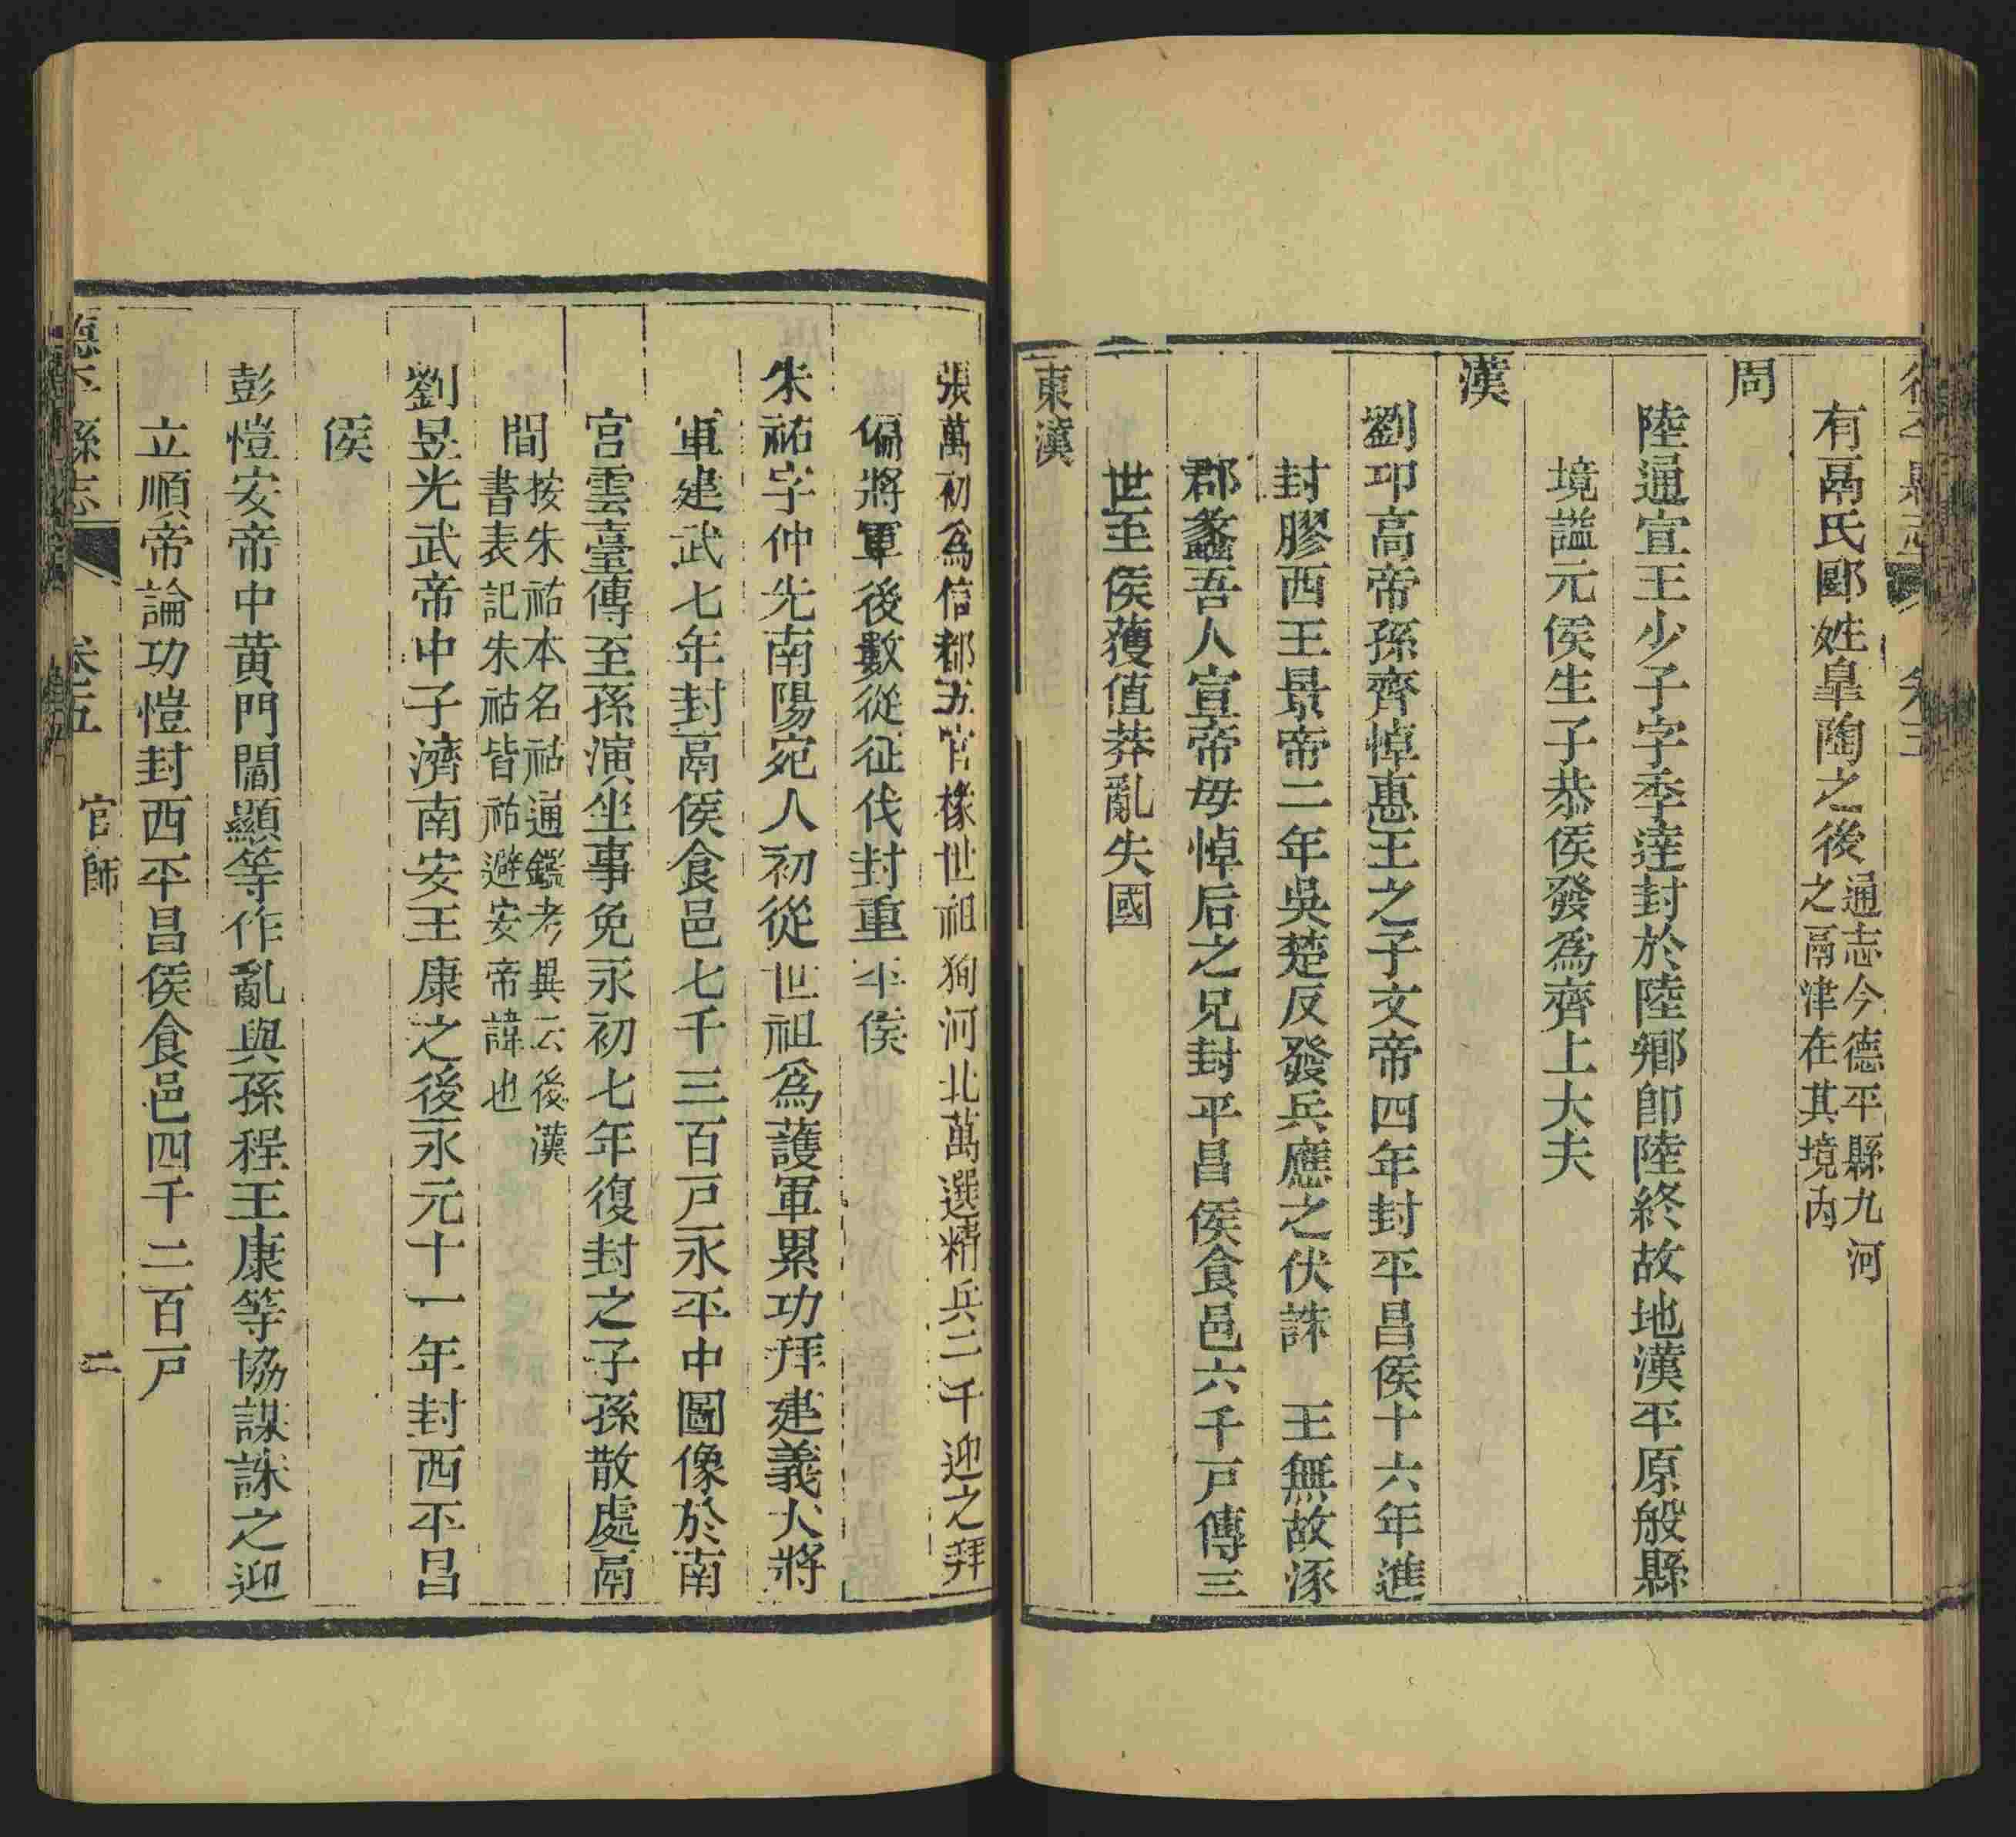 有鬲氏郾姓皐陶之後通志今德平縣九河
之鬲津在其境內
周
陸通宣王少子字季逹封於陸鄉卽陸終故地漢平原般縣
境謚元侯生子恭侯發爲齊上大夫
漢
劉卭高帝孫齊悼惠王之子文帝四年封平昌侯十六年進
封膠西王景帝二年吳楚反發兵應之伏誅 王無故涿
郡蠡吾人宣帝毋悼后之兄封平昌侯食邑六千戸傳三
世至侯䕶值莽亂失國
東漢
張萬初爲信都五官椽世祖狥河北萬選精兵二千迎之拜
偏將軍後數從征伐封重平侯
朱祐字仲先南陽宛人初從世祖爲護軍累功拜建義大將
軍建武七年封鬲侯食邑七千三百戸永平中圖像於南
宫雲臺傳至孫演坐事免永初七年復封之子孫散處鬲
間按朱祐本名祜通鑑考異云後漢
書表記朱祜皆祐避安帝諱也
劉昱光武帝中子濟南安王康之後永元十一年封西平昌
侯
彭愷安帝中黄門閻顯等作亂與孫程王康等協謀誅之迎
立順帝論功愷封西平昌侯食邑四千二百戸
德平縣志 卷五 官師 二